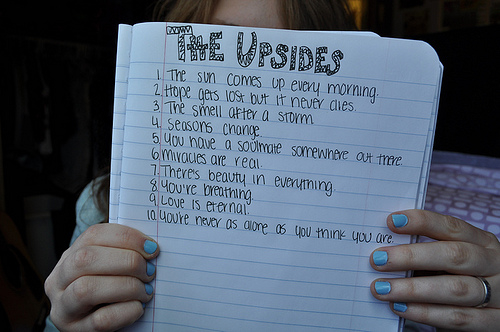 THE UPSIDES
1. The sun comes up every morning.
2. Hope gets lost but it never dies.
3. The smell after a storm
4. Seasons change.
5. You have a soulmate somewhere out there
6. miracles are real.
7. There's beauty in everything.
8. You're breathing.
9. Love is eternal.
10. You're never as alone as you think you are.